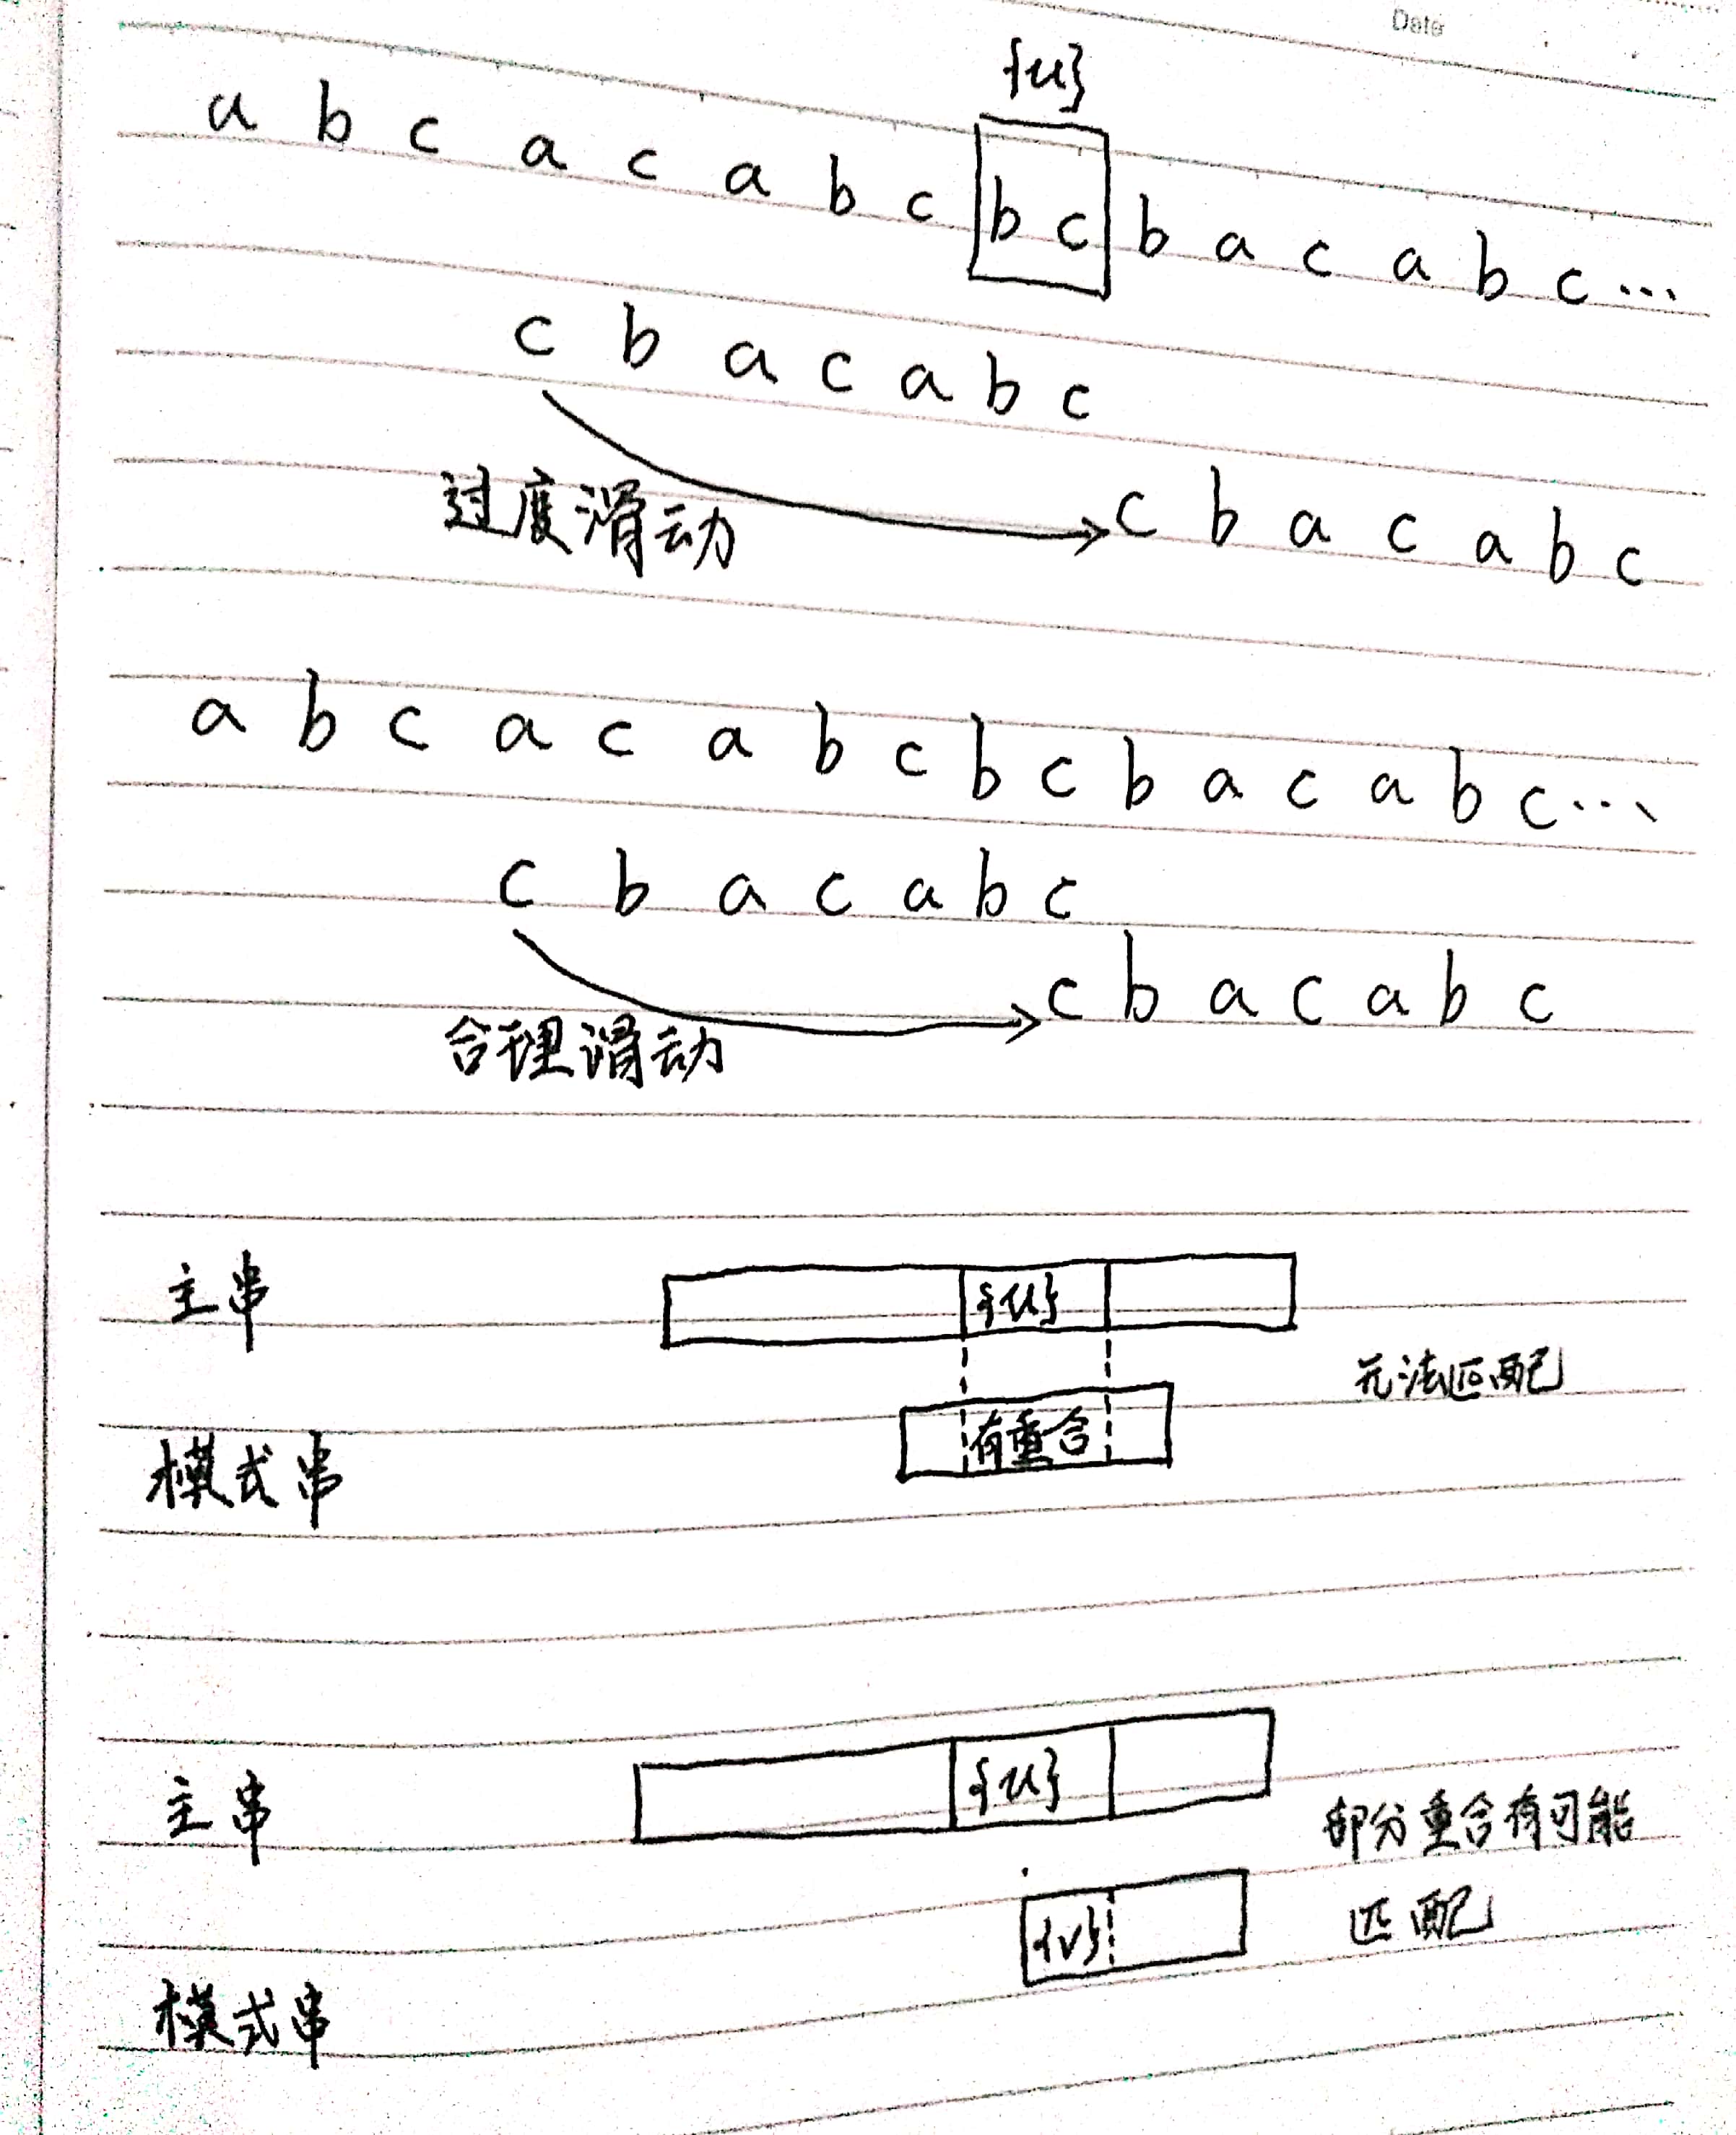 Date
{u}
a b c a c a b c b c b a c a b c ...
c b a c a b c
过度滑动
c b a c a b c
a b c a c a b c b c b a c a b c ...
c b a c a b c
c b a c a b c
合理滑动
主串 {u}
无法匹配
模式串 有重合
主串 {u}
部分重合有可能
匹配
{v}
模式串